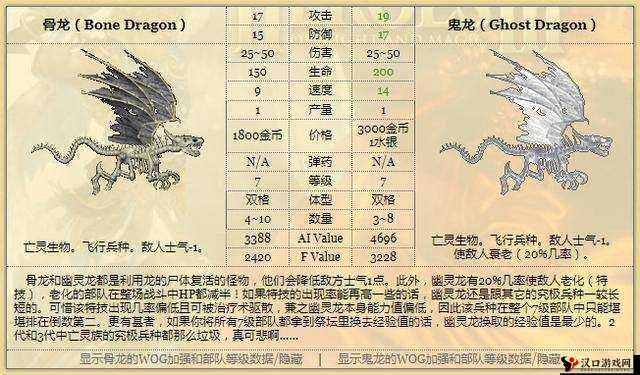 骨龙（Bone Dragon）
17 攻击 19
鬼龙（Ghost Dragon）
15 防御 17
25~50 伤害 25~50
150 生命 200
9 速度 14
1 产量 1
1800金币 价格 3000金币
1水银
N/A 弹药 N/A
7 等级 7
双格 体型 双格
4~10 数量 3~8
3388 AI Value 4696
2420 F Value 3228
亡灵生物。飞行兵种。敌人士气-1。
亡灵生物。飞行兵种。敌人士气-1。
使敌人衰老（20%几率）。
骨龙和幽灵龙都是利用龙的尸体复活的怪物，他们会降低敌方士气1点。此外，幽灵龙有20%几率使敌人老化（特
技），老化的部队在整场战斗中HP都减半！如果特技的出现率能再高一些的话，幽灵龙还是跟其它的究极兵种一较长
短的。可惜该特技出现几率偏低且可被治疗术驱散，兼之幽灵龙本身能力值偏低，因此该兵种在整个7级部队中只能堪
堪排在倒数第二。更有甚者，如果你将所有7级部队都拿到祭坛里换去经验值的话，幽灵龙换取的经验值是最少的。2
代和3代中亡灵族的究极兵种都那么垃圾，真可悲啊……
显示骨龙的WOG加强和部队等级数据/隐藏 | 显示鬼龙的WOG加强和部队等级数据/隐藏
汉口游戏网